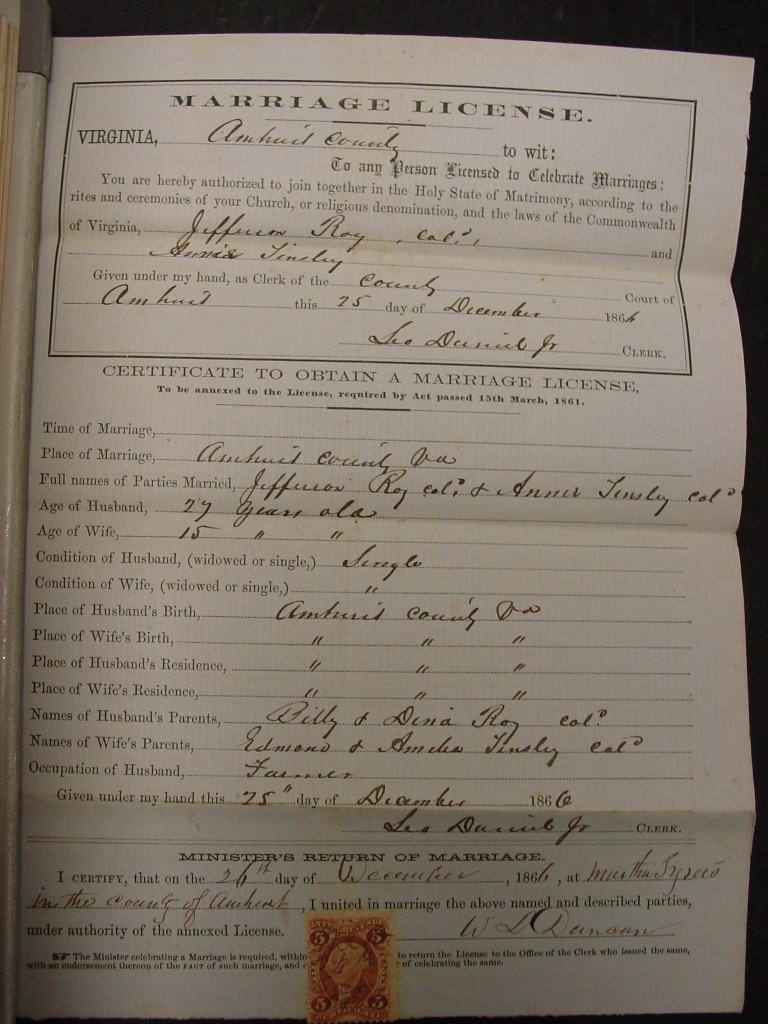 MARRIAGE LICENSE.
VIRGINIA, Amherst County to wit:
To any Person Licensed to Celebrate Marriages:
You are hereby authorized to join together in the Holy State of Matrimony, according to the
rites and ceremonies of your Church, or religious denomination, and the laws of the Commonwealth
of Virginia, Jefferson Roy, col'd, and
Annie Tinsley
Given under my hand, as Clerk of the County Court of
Amherst this 25 day of December 1866
Geo Daniel Jr CLERK.
CERTIFICATE TO OBTAIN A MARRIAGE LICENSE,
To be annexed to the License, required by Act passed 15th March, 1861.
Time of Marriage,
Place of Marriage, Amherst County Va
Full names of Parties Married, Jefferson Roy col'd & Anner Tinsley col'd
Age of Husband, 27 years old
Age of Wife, 15 " "
Condition of Husband, (widowed or single,) Single
Condition of Wife, (widowed or single,) "
Place of Husband's Birth, Amherst County Va
Place of Wife's Birth, " " "
Place of Husband's Residence, " " "
Place of Wife's Residence, " " "
Names of Husband's Parents, Billy & Dina Roy col'd
Names of Wife's Parents, Edmond & Amelia Tinsley col'd
Occupation of Husband, Farmer
Given under my hand this 25" day of December 1866
Geo Daniel Jr CLERK.
MINISTER'S RETURN OF MARRIAGE.
I CERTIFY, that on the 26th day of December, 1866, at Martha
in the county of Amherst, I united in marriage the above named and described parties,
under authority of the annexed License. W L Duncan
☛ The Minister celebrating a Marriage is required, within to return the License to the Office of the Clerk who issued the same,
with an endorsement thereof of the FACT of such marriage, and of celebrating the same.
5 5
5 CERTIFICATE 5